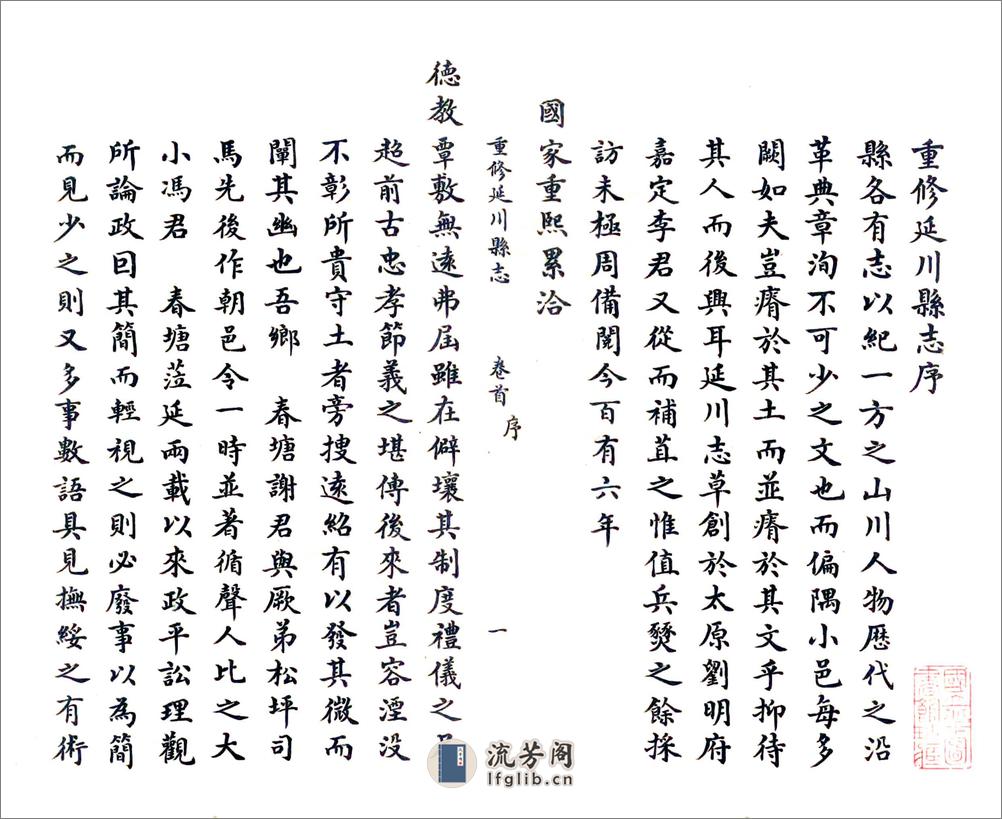 重修延川縣志序
縣各有志以紀一方之山川人物歷代之沿
革典章洵不可少之文也而偏隅小邑每多
闕如夫豈瘠於其土而並瘠於其文乎抑待
其人而後興耳延川志草創於太原劉明府
嘉定李君又從而補苴之惟值兵燹之餘採
訪未極周備閱今百有六年
國家重熙累洽
重修延川縣志 卷首 序 一
德教覃敷無遠弗屆雖在僻壤其制度禮儀之
超前古忠孝節義之堪傳後來者豈容湮没
不彰所貴守土者旁搜遠紹有以發其微而
闡其幽也吾鄉 春塘謝君與厥弟松坪司
馬先後作朝邑令一時並著循聲人比之大
小馮君 春塘蒞延兩載以來政平訟理觀
所論政曰其簡而輕視之則必廢事以為簡
而見少之則又多事數語具見撫綏之有術
流芳阁
lfglib.cn